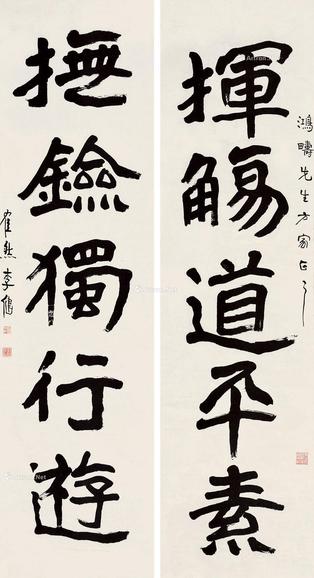 揮觴道平素
鴻疇先生方家正之
撫鐱獨行遊
李鶴